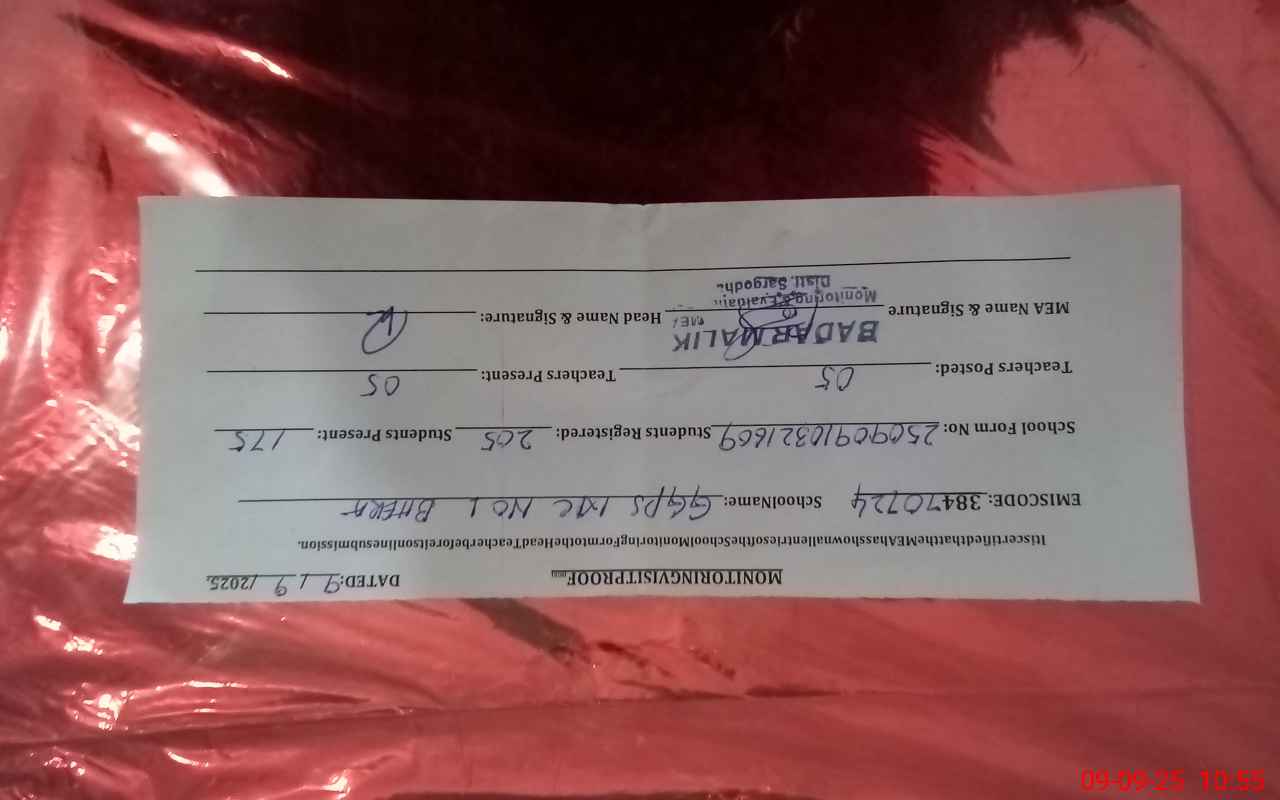 MONITORINGVISITPROOF DATED:9/9/2025.
ItiscertifiedthattheMEAhasshownallentriesoftheSchoolMonitoringFormtotheHeadTeacherbeforeitsonlinesubmission.
EMISCODE: 38470724 SchoolName: GGPS MC NO 1 BHERA
School Form No: 25090910321609 Students Registered: 205 Students Present: 175
Teachers Posted: 05 Teachers Present: 05
BADAR MALIK
MEA
MEA Name & Signature Head Name & Signature:
Monitoring & Evaluati
Distt. Sargodh
09-09-25 10:55